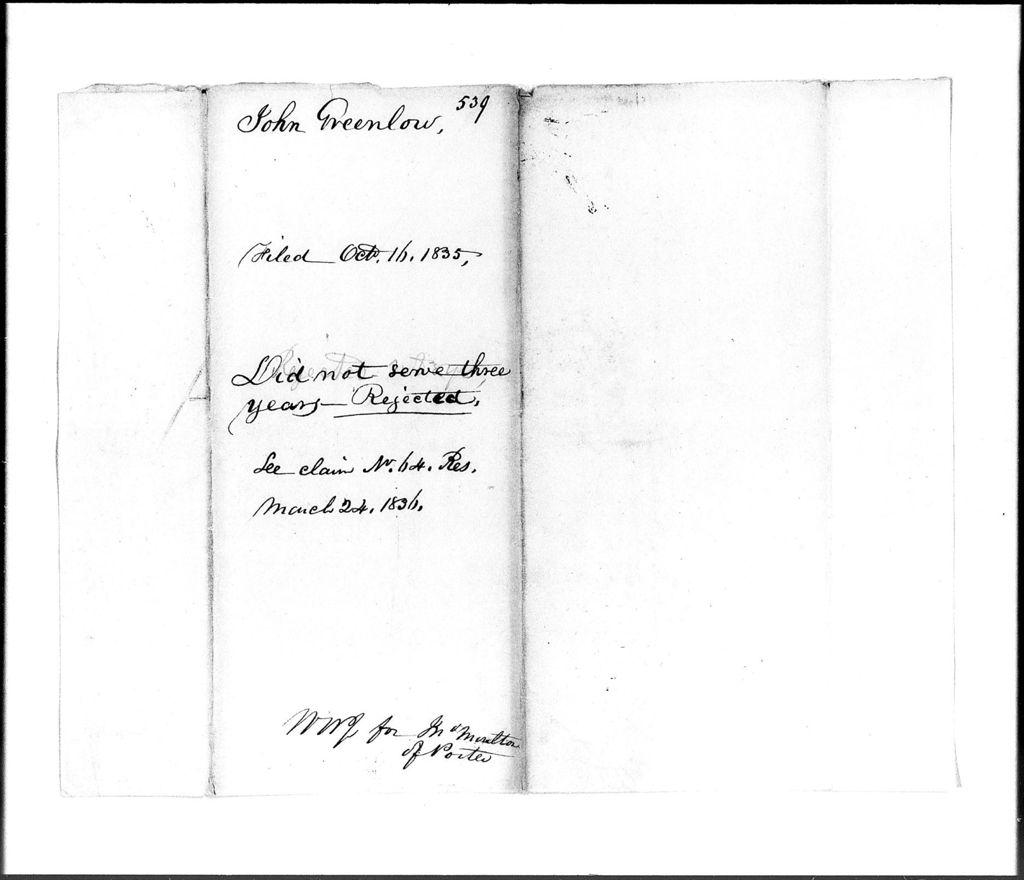 539
John Greenlow,
Filed Oct. 16. 1835,
Did not serve three
years— Rejected.
See claim No. 64. Res.
March 24. 1836.
for Jno Moulton
of Porter